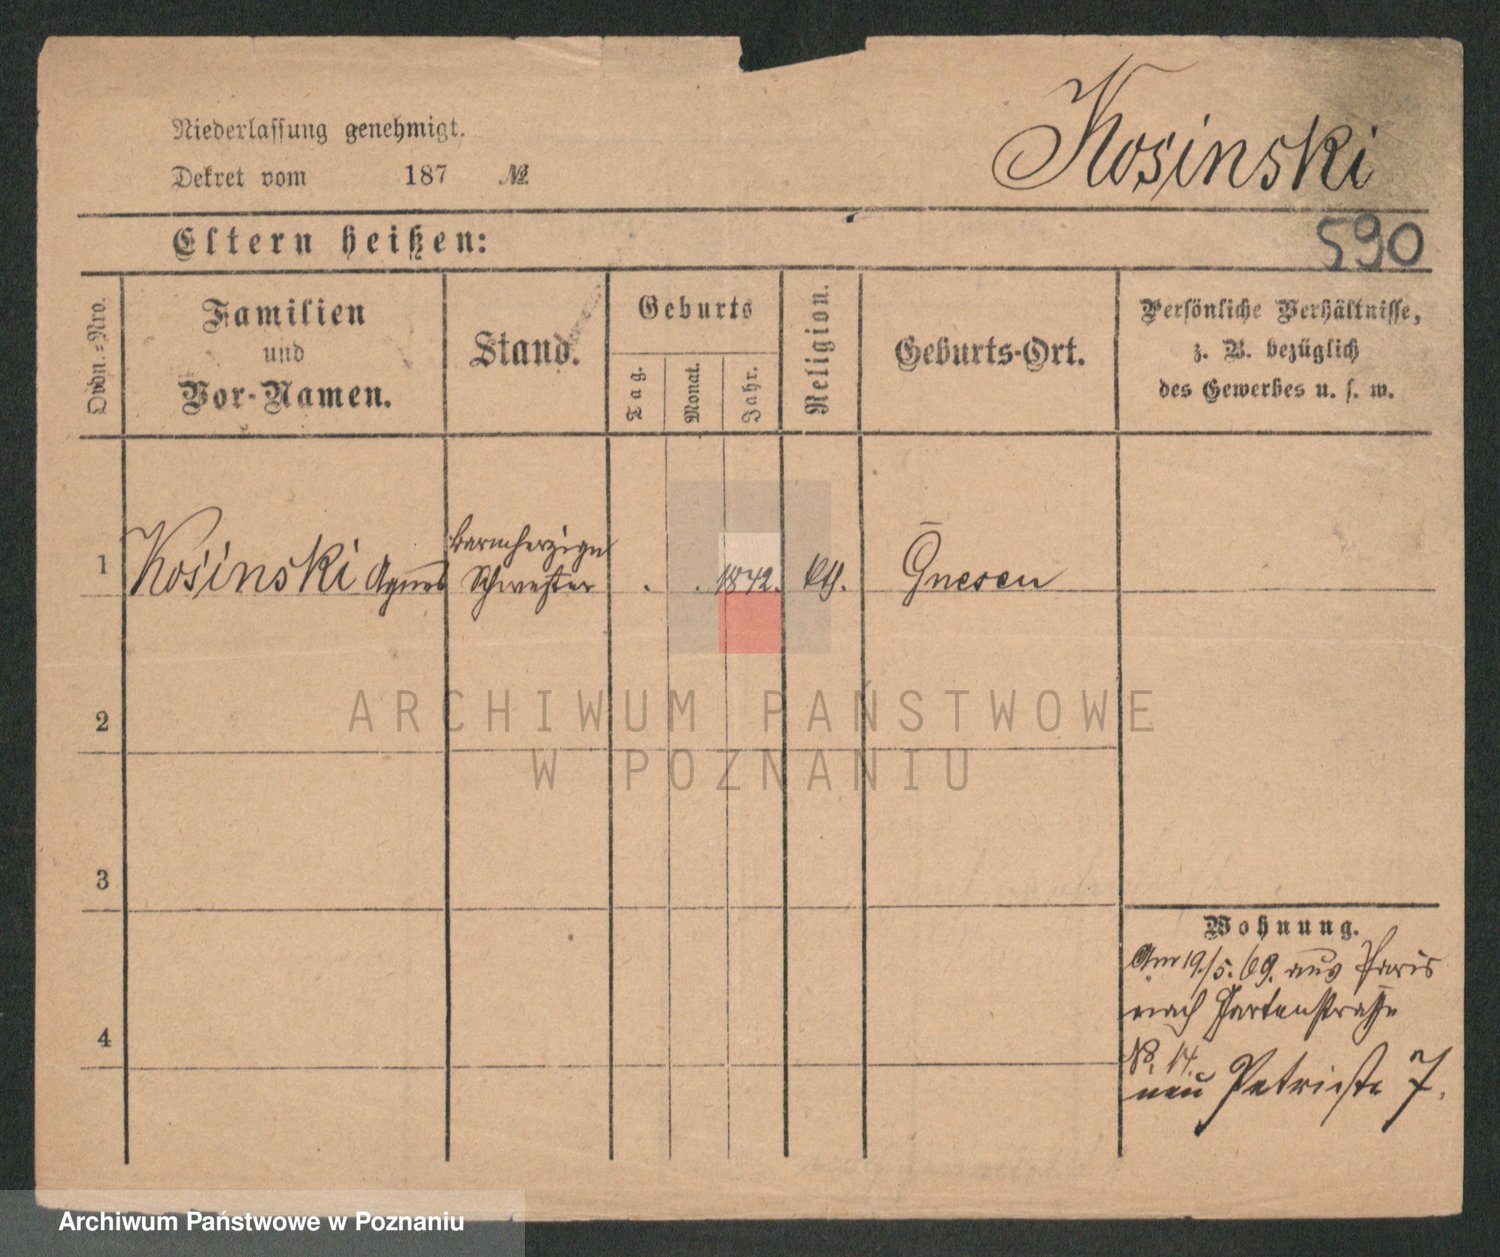 Niederlassung genehmigt.
Dekret vom 187 №
Kosinski
590
Eltern heißen:
Ordn.-Nro.
Familien
und
Vor-Namen.
Stand.
Geburts
Tag.
Monat.
Jahr.
Religion.
Geburts-Ort.
Persönliche Verhältnisse,
z. B. bezüglich
des Gewerbes u. s. w.
1
Kosinski Agnes
barmherzige
Schwester
. . 1842.
kth.
Gnesen
2
3
4
Wohnung.
Am 19./5. 69. aus Paris
nach Gartenstraße
No. 14.
neu Petristr 7.
ARCHIWUM PAŃSTWOWE
W POZNANIU
Archiwum Państwowe w Poznaniu